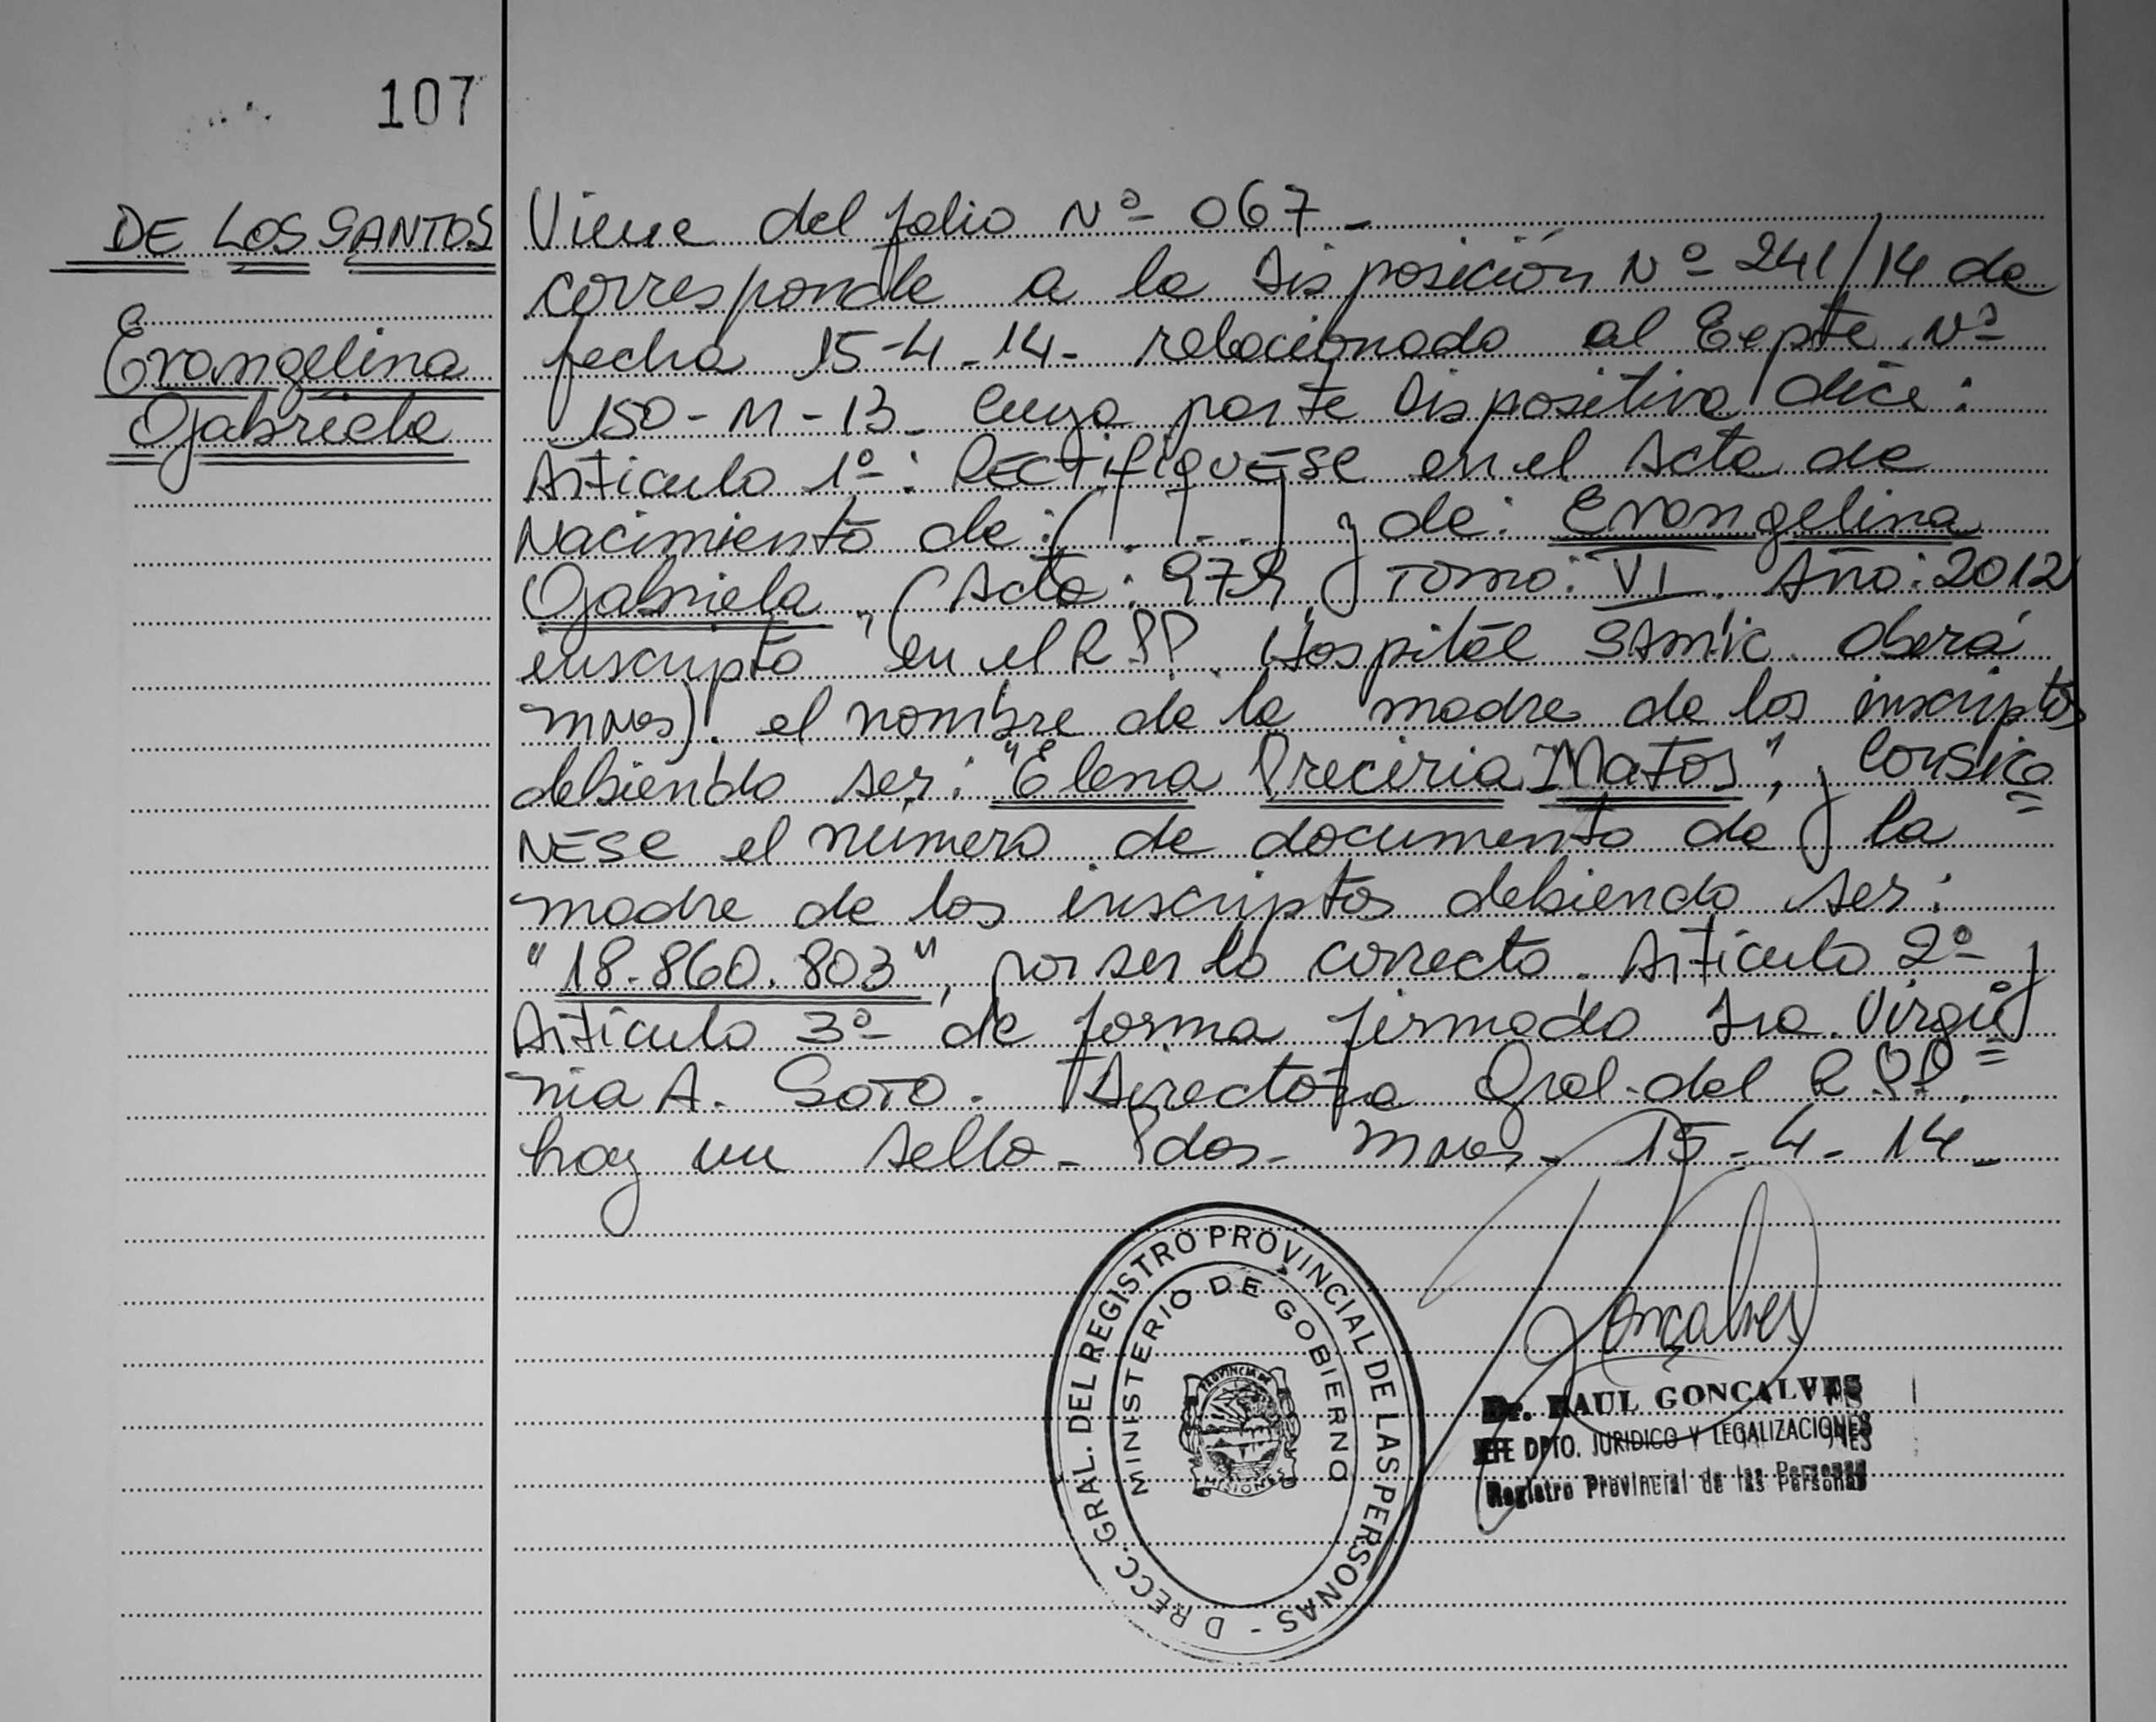 107
DE LOS SANTOS
Evangelina
Gabriela
Viene del folio Nº 067 -
corresponde a la Disposición Nº 241/14 de
fecha 15-4-14- relacionado al Expte. Nº
150-M-13. cuya parte Dispositiva dice:
Artículo 1º: RECTIFIQUESE en el Acta de
Nacimiento de: (- - -) y de: Evangelina
Gabriela, (Acta: 979, Tomo: VI. Año: 2012
inscripto en el RPP. Hospital SAMIC. Oberá
Mnes). el nombre de la madre de los inscriptos
debiendo ser: "Elena Preciria Matos", y CONSIG=
NESE el número de documento de la
madre de los inscriptos debiendo ser:
"18.860.803", por ser lo correcto. Artículo 2º y
Artículo 3º de forma firmado Sra. Virgi=
nia A. Soto. Directora Gral. del RPP.
hay un sello - Pdas- Mnes- 15-4-14-
DIRECC. GRAL. DEL REGISTRO PROVINCIAL DE LAS PERSONAS -
MINISTERIO DE GOBIERNO
PROVINCIA DE
MISIONES
Gonçalves
Dr. RAUL GONCALVES
JEFE DPTO. JURIDICO Y LEGALIZACIONES
Registro Provincial de las Personas